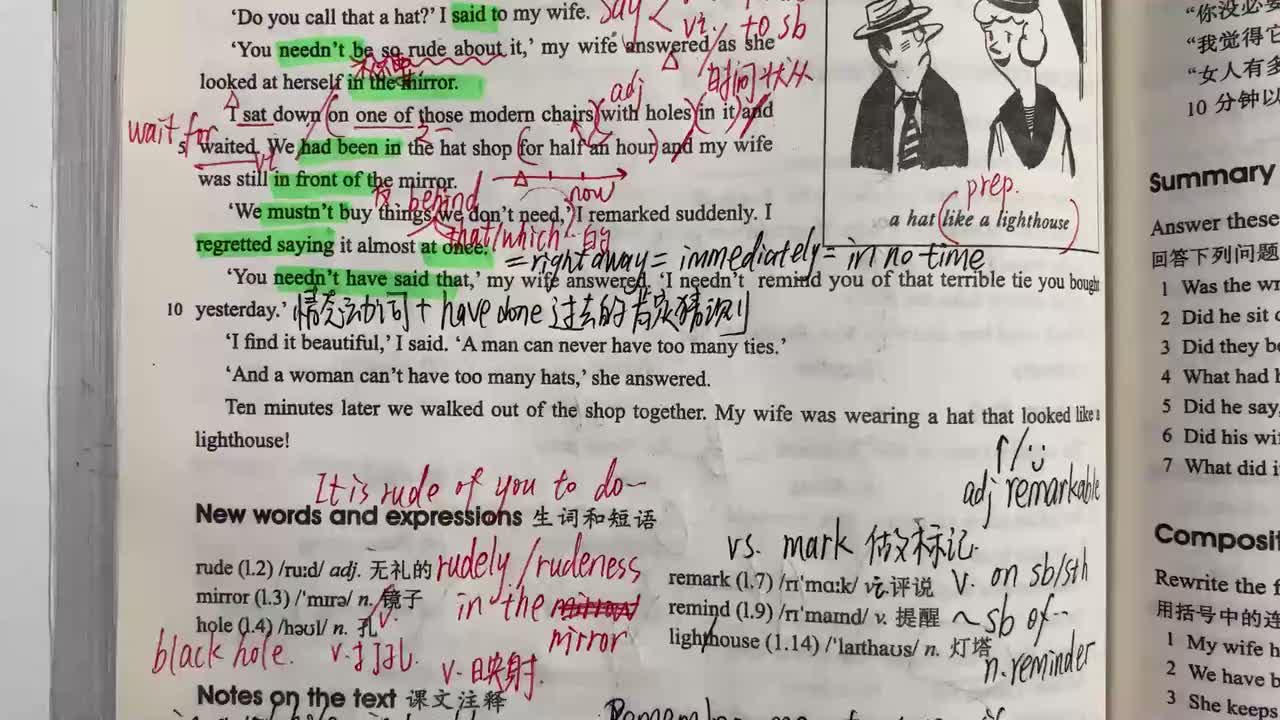 say < vi. to sb
‘Do you call that a hat?’ I said to my wife.
‘You needn’t be so rude about it,’ my wife answered as she
looked at herself in the mirror.
adj
时间状从
I sat down on one of those modern chairs with holes in it and
wait for
waited. We had been in the hat shop for half an hour and my wife
vi
was still in front of the mirror.
反 behind
now
‘We mustn’t buy things we don’t need,’ I remarked suddenly. I
that/which 的
regretted saying it almost at once.
= right away = immediately = in no time
‘You needn’t have said that,’ my wife answered. ‘I needn’t remind you of that terrible tie you bought
10 yesterday.’
情态动词 + have done 过去的肯定猜测
‘I find it beautiful,’ I said. ‘A man can never have too many ties.’
‘And a woman can’t have too many hats,’ she answered.
Ten minutes later we walked out of the shop together. My wife was wearing a hat that looked like a
lighthouse!
prep.
a hat (like a lighthouse)
adj remarkable
It is rude of you to do
New words and expressions 生词和短语
rude (l.2) /ruːd/ adj. 无礼的 rudely / rudeness
mirror (l.3) /ˈmɪrə/ n. 镜子
in the mirror
hole (l.4) /həʊl/ n. 孔
black hole. v.打孔
v.映射
vs. mark 做标记
remark (l.7) /rɪˈmɑːk/ v. 评说 v. on sb/sth
remind (l.9) /rɪˈmaɪnd/ v. 提醒 ~ sb of
lighthouse (l.14) /ˈlaɪthaʊs/ n. 灯塔
n. reminder
Notes on the text 课文注释
“你没必要
“我觉得它
“女人有多
10 分钟以
Summary
Answer these
回答下列问题
1 Was the wr
2 Did he sit
3 Did they b
4 What had
5 Did he say,
6 Did his wi
7 What did i
Composit
Rewrite the f
用括号中的连
1 My wife h
2 We have b
3 She keeps